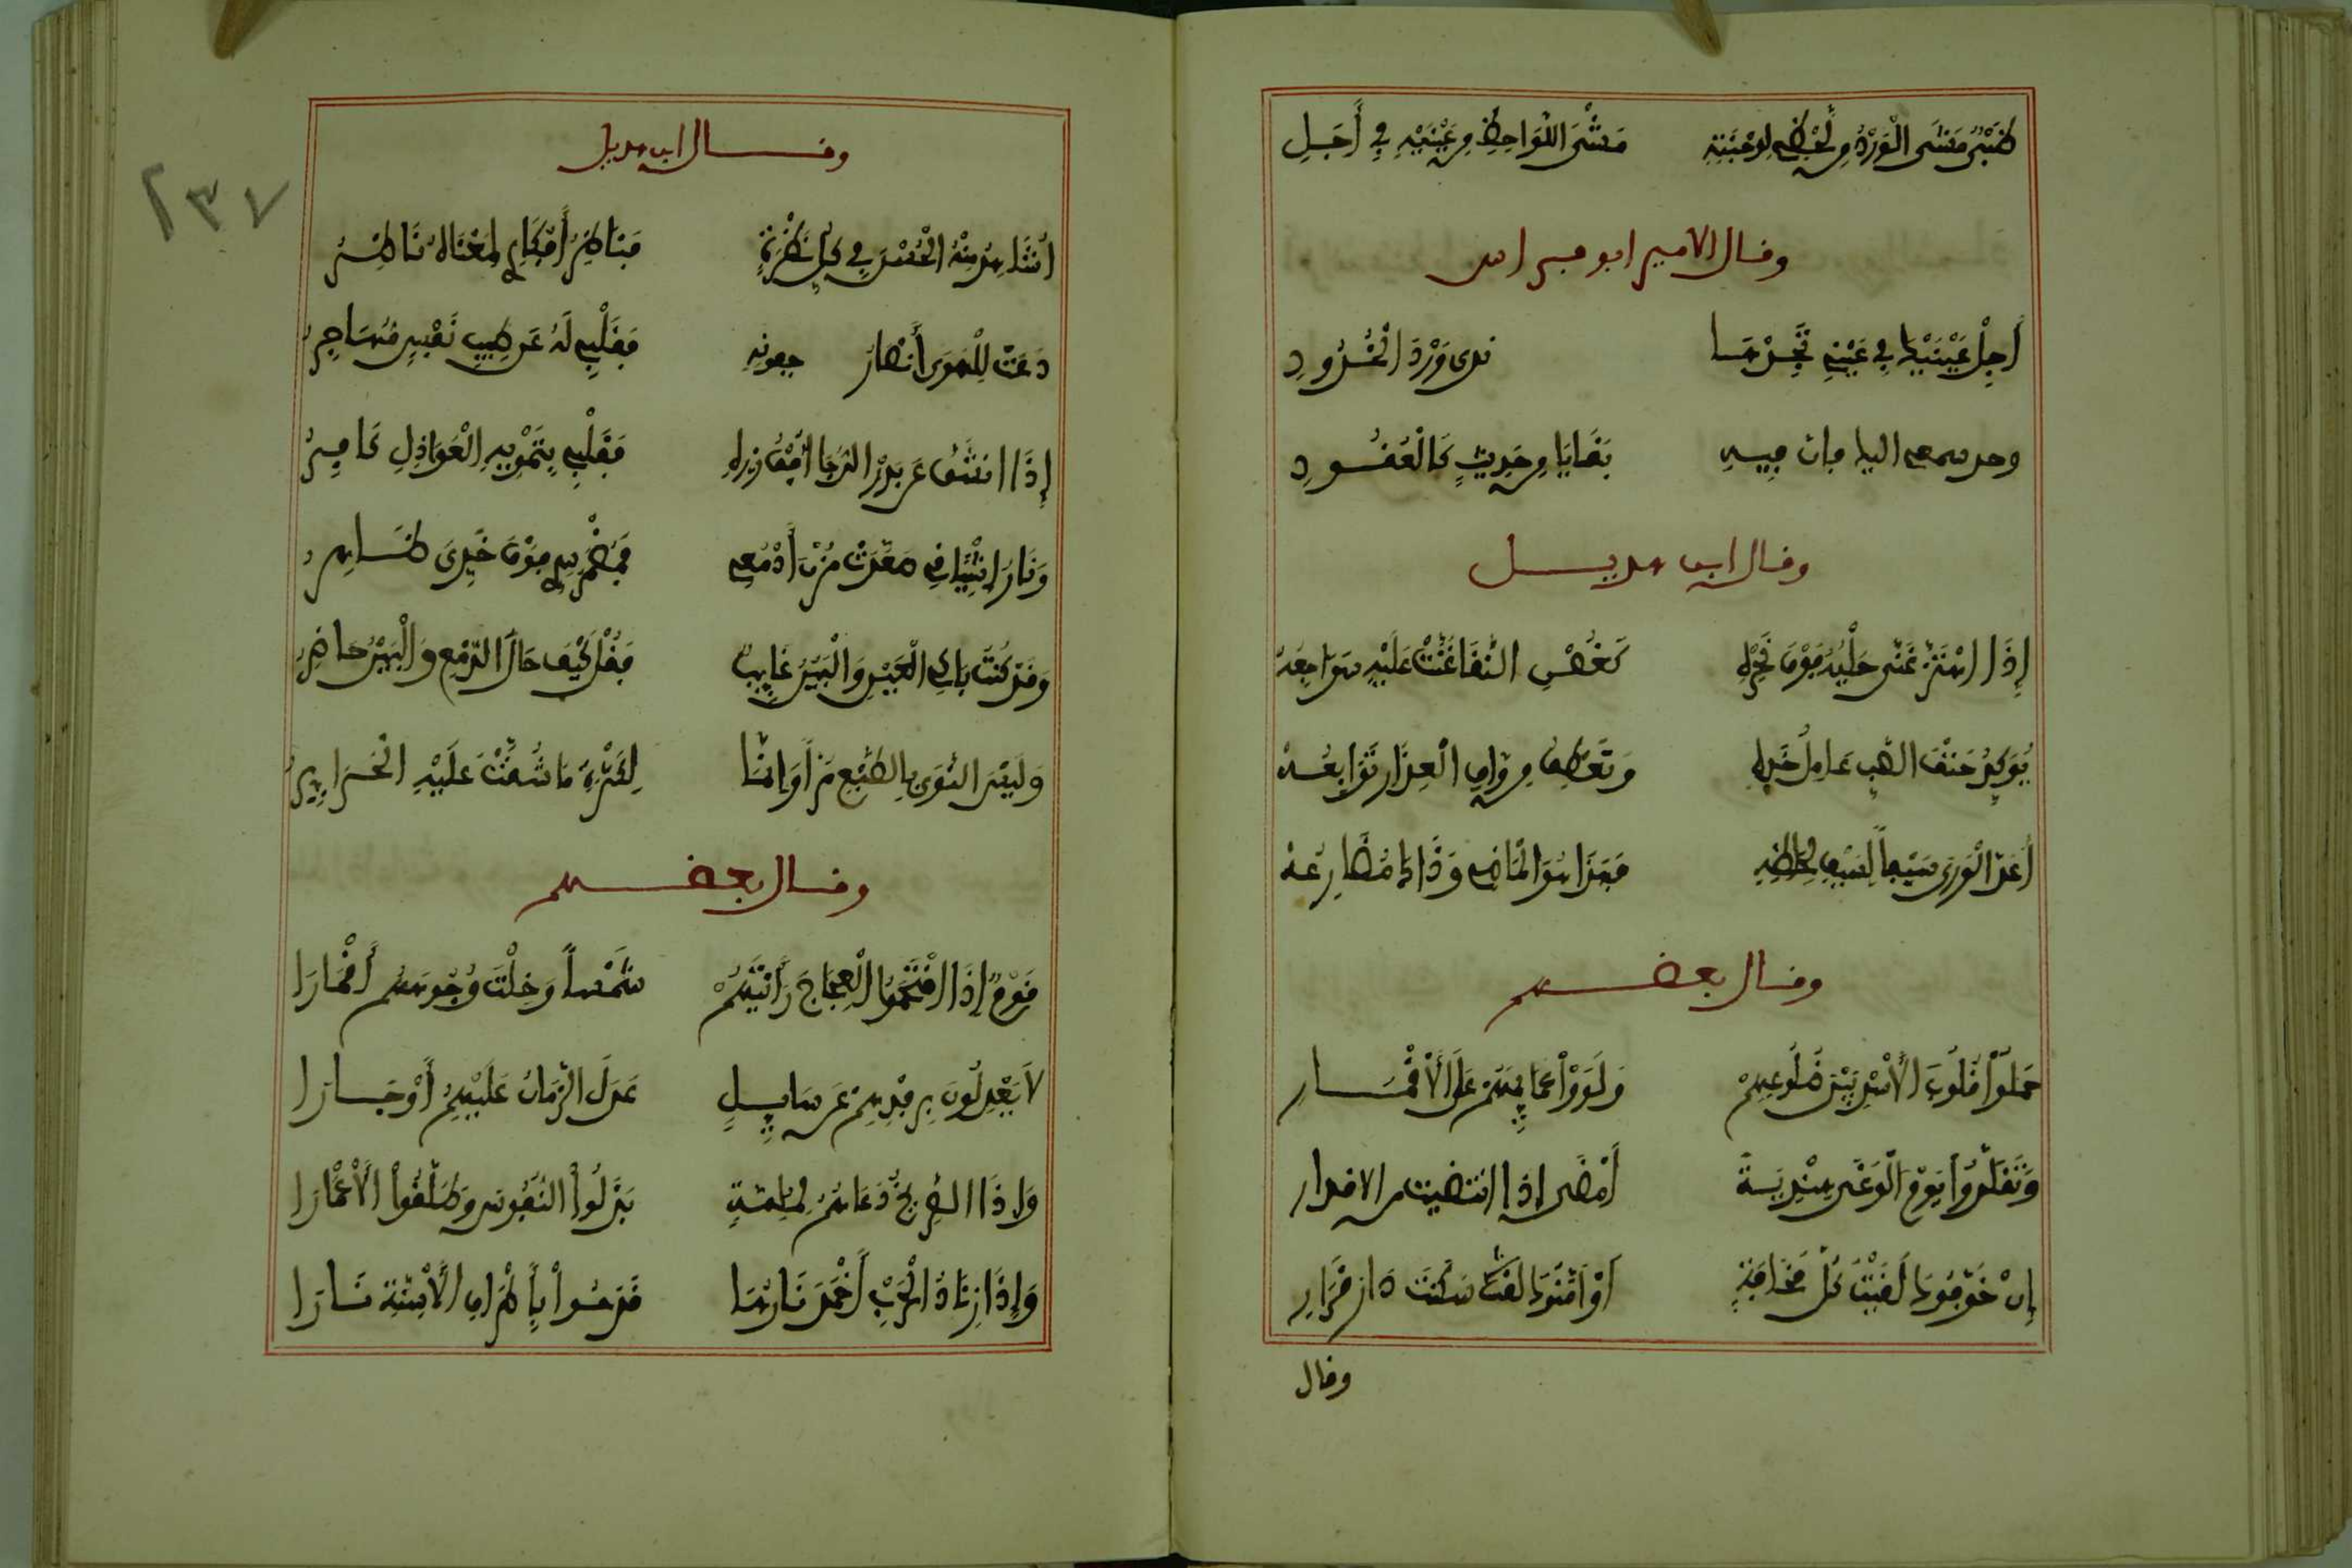 ظبي مشى الورد من لحظي لوجنته مشى اللواحظ من عينيه في أجلي
وقال الامير ابو فراس
أجل عينيك في عيني تجدها ندى ورد الخدود
وحد سمعي اليك فان فيه بقايا من حديث كالعقود
وقال ابن هديل
إذا اهتز غنى حليه فوق نحره كغصن النقا غنت عليه سواجعه
يؤكد حتف الصب عامل خده وتعطف من واو العذار توابعه
أعد الورى سيفا لسيف لحاظه فهذا هو الماضي وذاك مضارعه
وقال بعضهم
حملوا قلوب الأسد بين ضلوعهم ولووا عمايمهم على الأقمار
وتقلدوا يوم الوغى هندية أمضى إذا انتضيت من الاقدار
إن خوفوك لقيت كل مخافة أو أمنوك لقيت دار قرار
وقال
٢٣٧
وقال ابن هديل
أشاهد منه الحسن في كل نظرة وناظر أفكاري لمغناه ناظر
دعت للهوى أنصار جفونه فقلبي له عن طيب نفس مهاجر
إذا انشق عن بدر الدجا أفق زره فقلبي بتمويه العواذل كافر
ونار اشتياقي صعدت مزن أدمعي فمضمر سري فوق خدي ظاهر
وقد كنت باكي العين والبين غايب فقل كيف حال الدمع والبين حاضر
وليس النوى بالطبع مرا وإنما لكثرة ما شقت عليه الحراير
وقال بعضهم
قوم إذا اقتحموا العجاج رأيتهم شمسا وخلت وجوههم أقمارا
لا يعدلون برفدهم عن سايل عدل الزمان عليهم أو جارا
وإذا الصريخ دعاهم لملمة بذلوا النفوس وطلقوا الأعمارا
وإذا زناد الحرب أخمد نارها قدحوا بأطراف الأسنة نارا